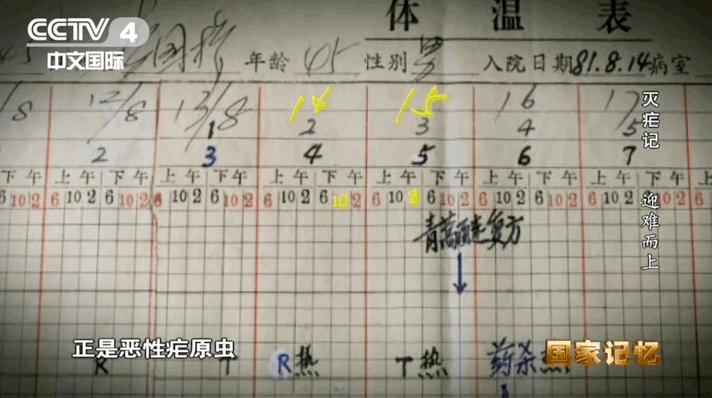 CCTV 4
中文国际
体温表
年龄 45 性别 男 入院日期 81.8.14 病室
12/8 13/8 14 15 16 17
1 2 3 4 5
2 3 4 5 6 7
上午 下午 上午 下午 上午 下午 上午 下午 上午 下午 上午 下午
6 10 2 6 10 2 6 10 2 6 10 2 6 10 2 6 10 2 6 10 2 6 10 2 6 10 2 6 10 2 6 10 2 6 10 2
复方
R T R热 T热 药杀
正是恶性疟原虫
灭疟记 迎难而上
国家记忆